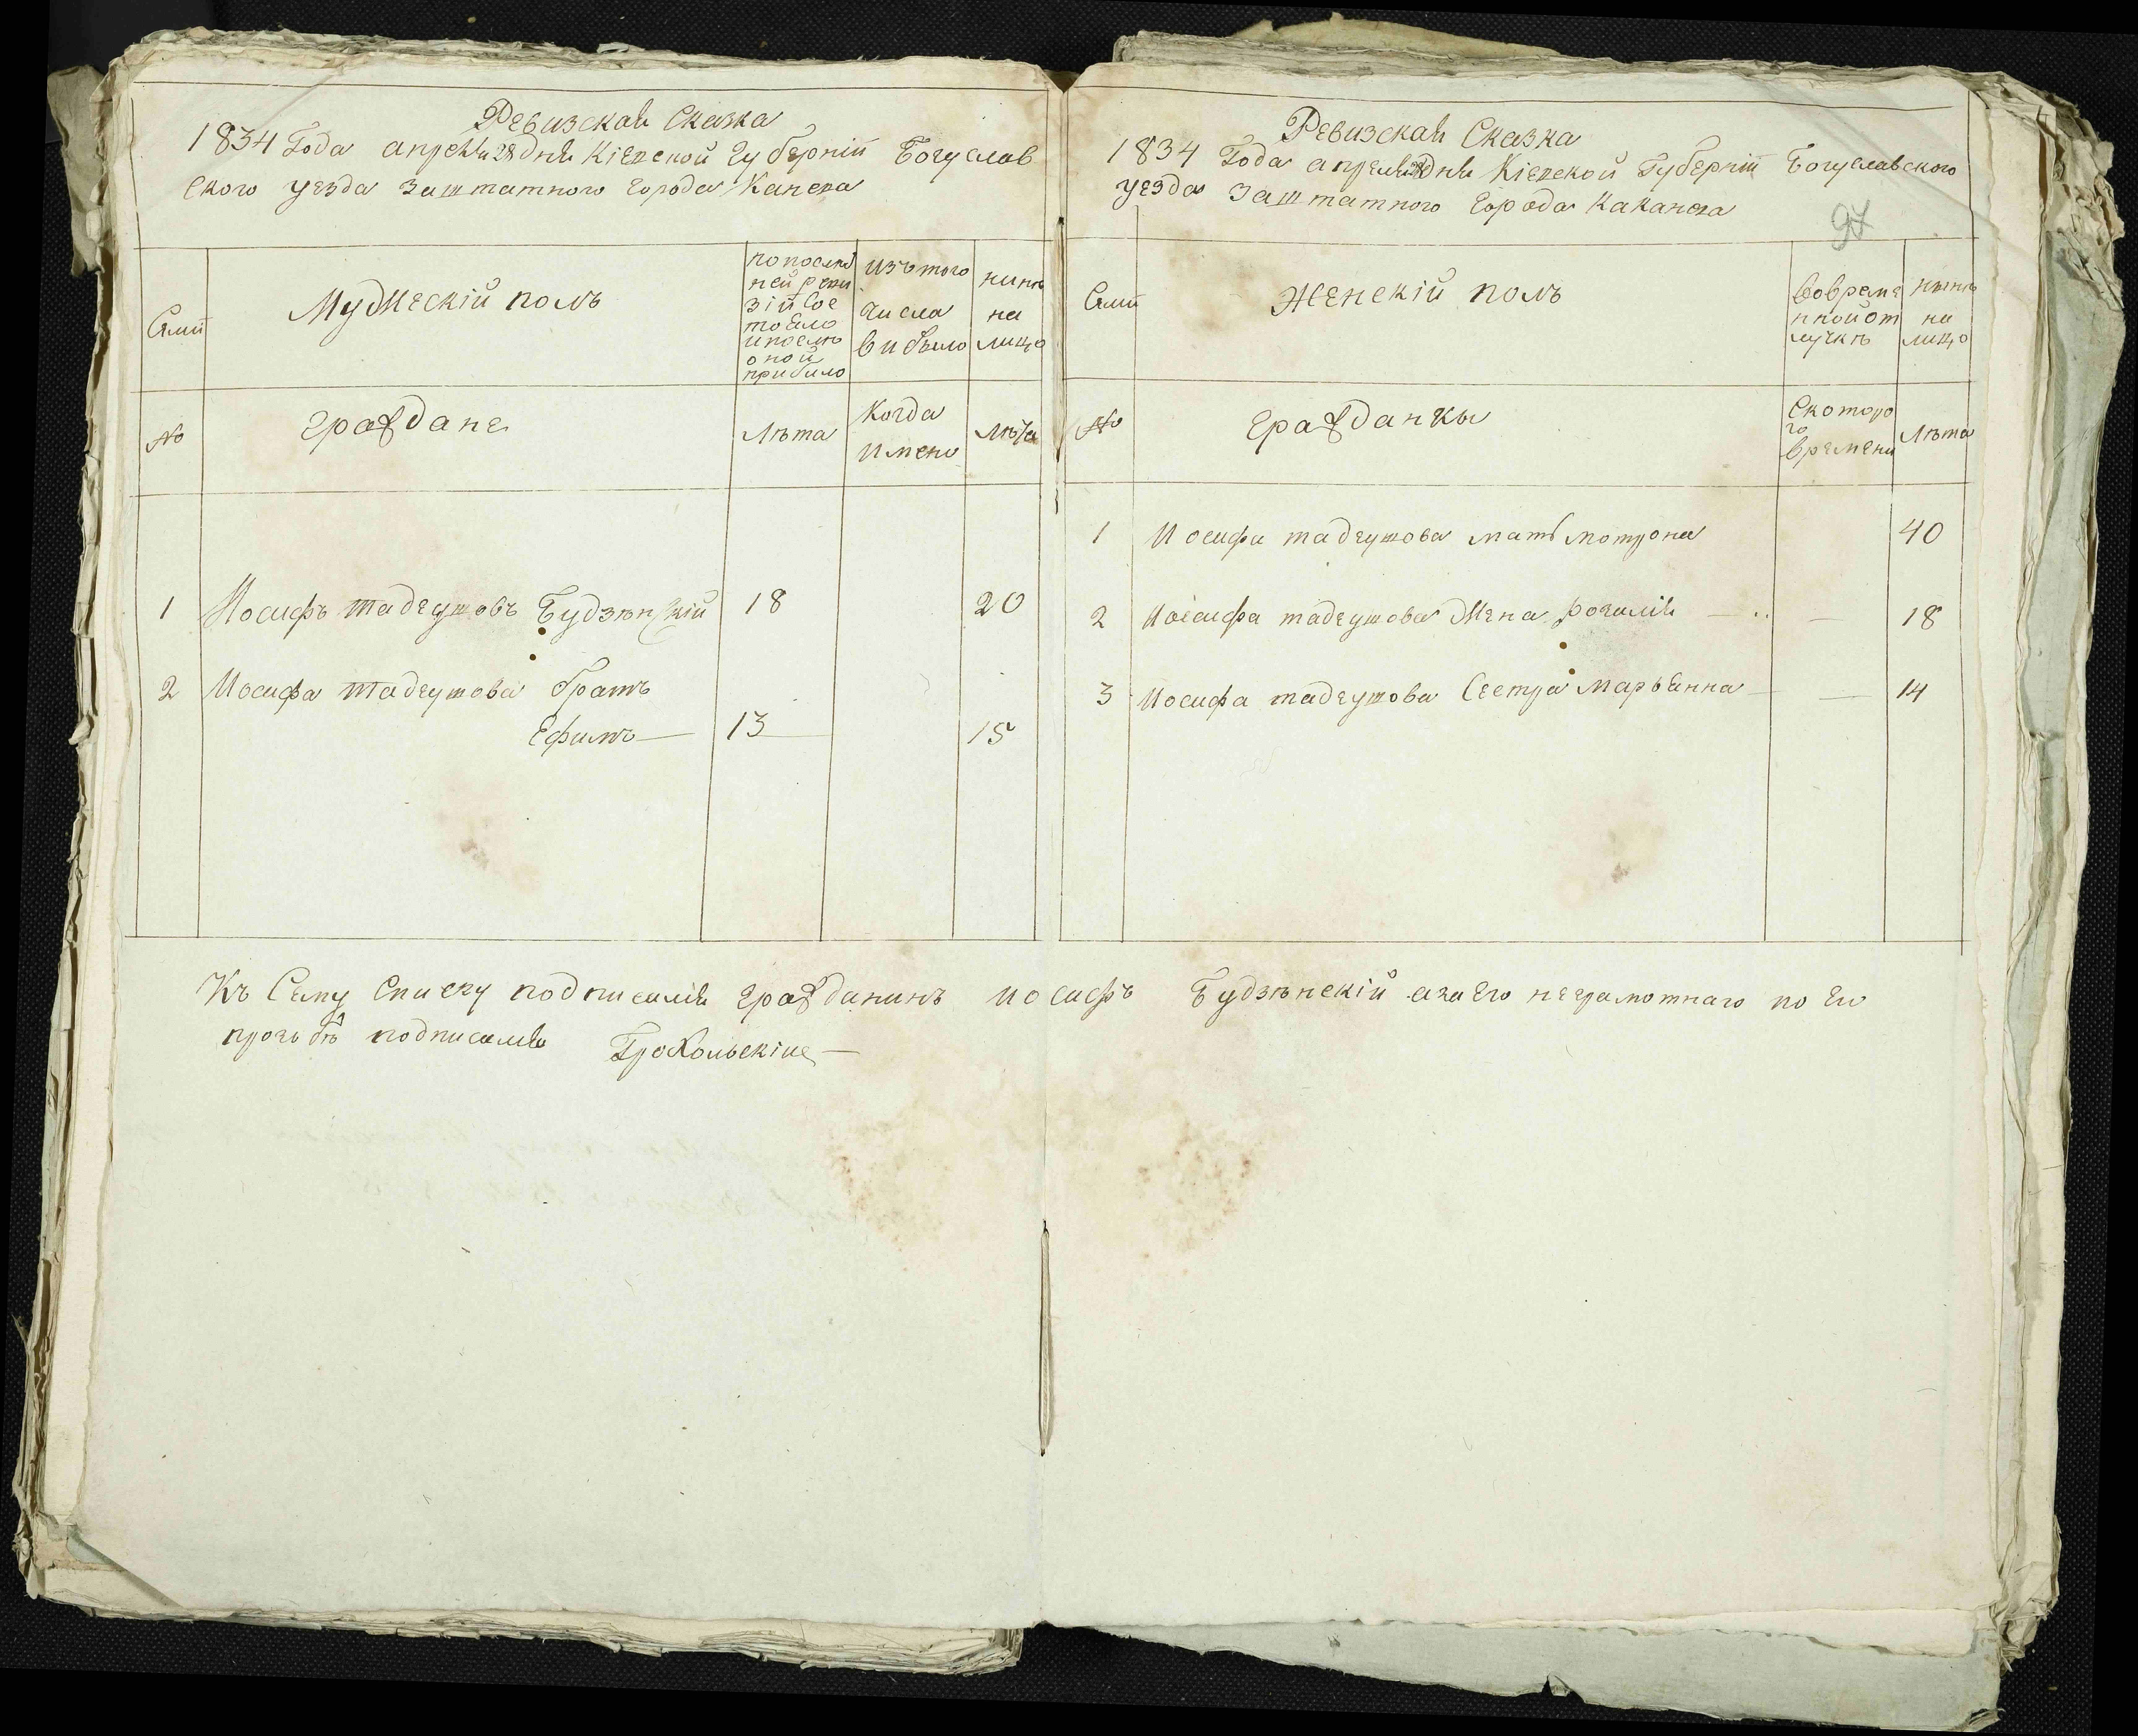 Ревизская Сказка
1834 Года апреля 28 дня Кіевской губерніи Богуслав
ского уезда Заштатного города Канева
Семіи
Мужескій полъ
попослед
ней реви
зіи сос
тояло
ипосле
оной
прибило
изътого
числа
вибыло
нинѣ
на
лицо
№
граждане
Лѣта
Когда
имено
Лѣта
1 Иосифъ тадеушовъ Будзѣнскій 18 20
2 Иосифа тадеушова братъ
Ефимъ — 13 15
Ревизская Сказка
1834 Года апреля дня Кіевской Губерніи Богуславского
уезда Заштатного города Каканева
97
Семіи
Женскій полъ
Вовреме
нной от
лучкѣ
нынѣ
на
лицо
№
гражданки
Скоторо
го
времени
Лѣта
1 Иосифа тадеушова мать мотрона 40
2 Иосифа тадеушова жена розалія — — 18
3 Иосифа тадеушова Сестра марьянна — — 14
Къ Сему Списку подписался гражданинъ иосифъ Будзѣнскій аза Его неграмотнаго по Ев
прозьбѣ подписался